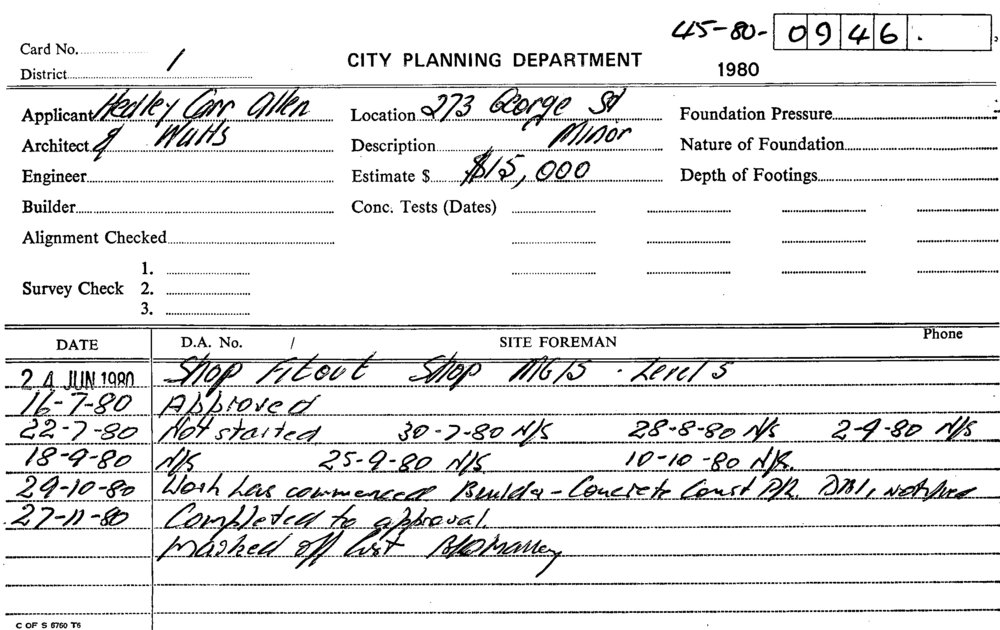 45-80-0946.
Card No. 1
CITY PLANNING DEPARTMENT
District
1980
Applicant Hedley Carr Allen
Location 273 George St
Foundation Pressure
Architect & Watts
Description Minor
Nature of Foundation
Engineer
Estimate $ $15,000
Depth of Footings
Builder
Conc. Tests (Dates)
Alignment Checked
1.
Survey Check 2.
3.
DATE D.A. No. / SITE FOREMAN Phone
24 JUN 1980 Shop Fitout Shop MG15 . Level 5
16-7-80 Approved
22-7-80 Not started 30-7-80 N/S 28-8-80 N/S 2-9-80 N/S
18-9-80 N/S 25-9-80 N/S 10-10-80 N/S.
29-10-80 Work has commenced Builder - Concrete Const P/L notified
27-11-80 Completed to approval
Marked off list
C OF S 6760 T6